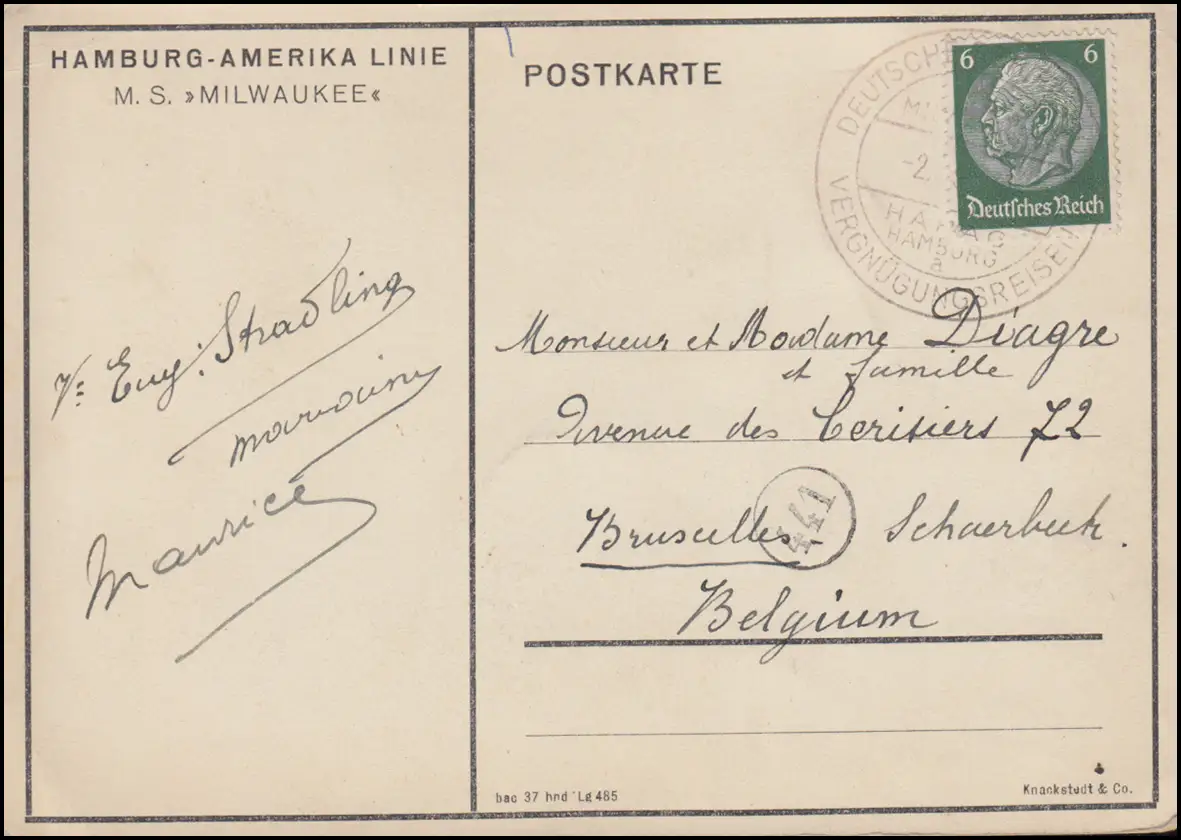 HAMBURG-AMERIKA LINIE
M. S. »MILWAUKEE«
POSTKARTE
DEUTSCHE
VERGNÜGUNGSREISEN
-2.
HAPAG
HAMBURG
a
6 6
Deutsches Reich
Vᵉ Eug. Stradling
Maurice
Monsieur et Madame Diagre
et famille
Avenue des Cerisiers 72
441
Bruxelles Schaerbeek.
Belgium
bac 37 hnd Lg 485
Knackstedt & Co.